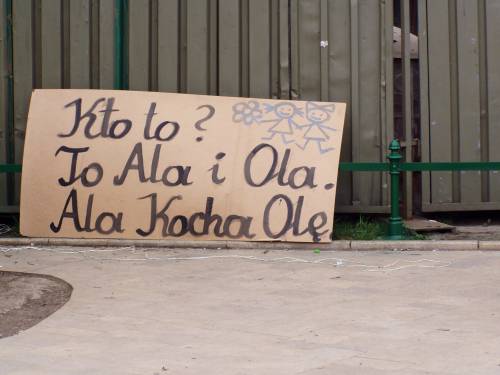 Kto to?
To Ala i Ola.
Ala Kocha Olę